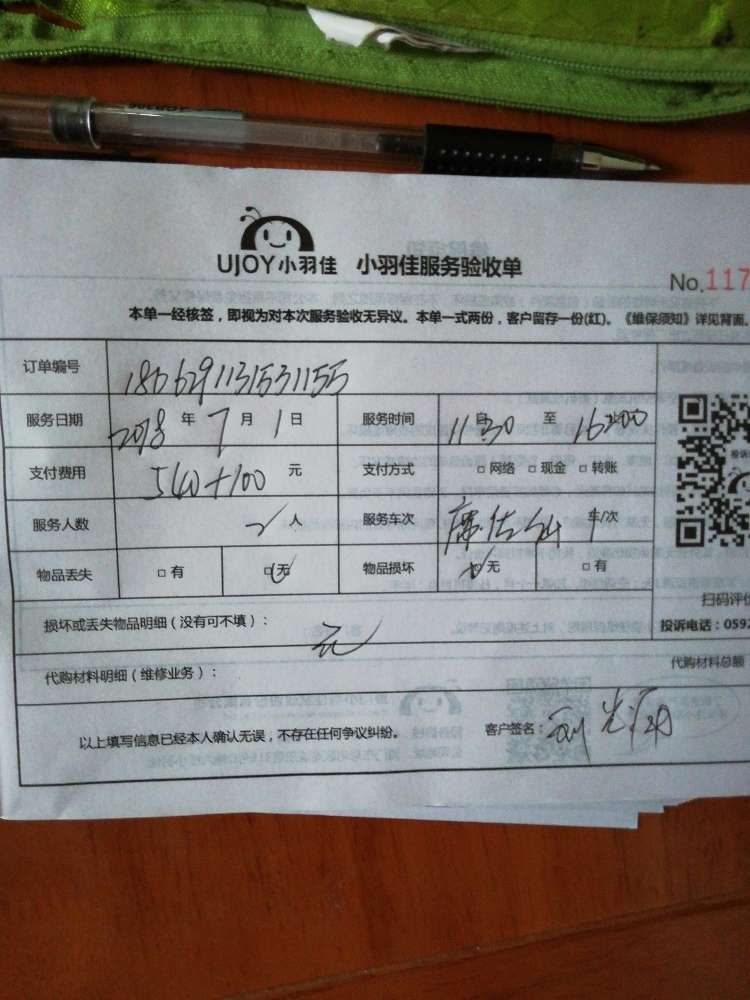 UJOY小羽佳 小羽佳服务验收单
No.117
本单一经核签，即视为对本次服务验收无异议。本单一式两份，客户留存一份(红)。《维保须知》详见背面。
订单编号 1806291131531155
服务日期 2018年7月1日 服务时间 11:30至16:00
支付费用 540+100元 支付方式 □网络 □现金 □转账
服务人数 2人 服务车次 车/次
物品丢失 □有 □无 物品损坏 □无 □有
扫码评价
损坏或丢失物品明细（没有可不填）： 无
投诉电话：0592
代购材料明细（维修业务）： 代购材料总额
以上填写信息已经本人确认无误，不存在任何争议纠纷。 客户签名：